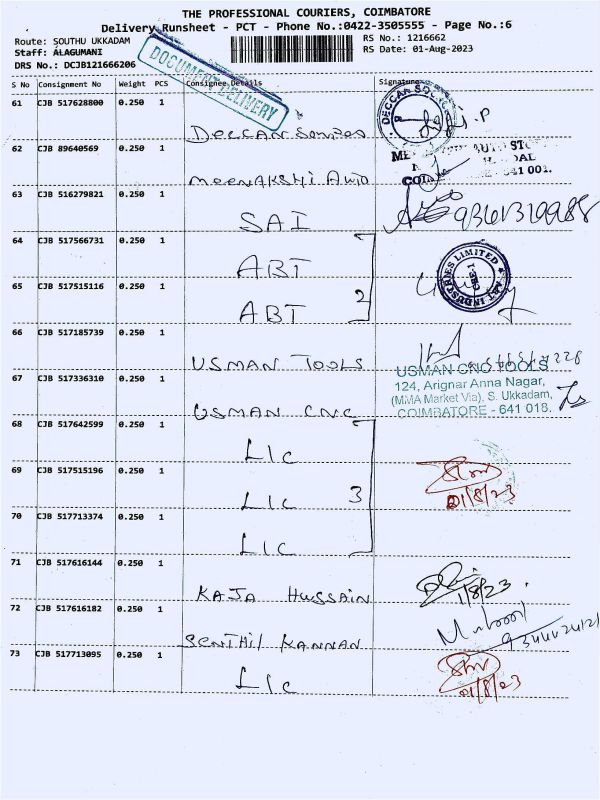 THE PROFESSIONAL COURIERS, COIMBATORE
Delivery Runsheet - PCT - Phone No.:0422-3505555 - Page No.:6
Route: SOUTHU UKKADAM
RS No.: 1216662
Staff: ALAGUMANI
RS Date: 01-Aug-2023
DRS No.: DCJB121666206
DOCUMENT DELIVERY
S No Consignment No Weight PCS Consignee Details Signature
61 CJB 517628800 0.250 1
DECCAN Services
DECCAN
62 CJB 89640569 0.250 1
MEENAKSHI AUTO
AUTO STO
COIM 641 001.
63 CJB 516279821 0.250 1
SAI
9361319988
64 CJB 517566731 0.250 1
ABT
ABT INDUSTRIES LIMITED
CBE-1
65 CJB 517515116 0.250 1
ABT
2
66 CJB 517185739 0.250 1
USMAN TOOLS
67 CJB 517336310 0.250 1
USMAN CNC
USMAN CNC TOOLS
124, Arignar Anna Nagar,
(MMA Market Via), S. Ukkadam,
COIMBATORE - 641 018.
68 CJB 517642599 0.250 1
LIC
69 CJB 517515196 0.250 1
LIC
3
01/8/23
70 CJB 517713374 0.250 1
LIC
71 CJB 517616144 0.250 1
KAJA HUSSAIN
1/8/23
72 CJB 517616182 0.250 1
SENTHIL KANNAN
73 CJB 517713095 0.250 1
LIC
01/8/23